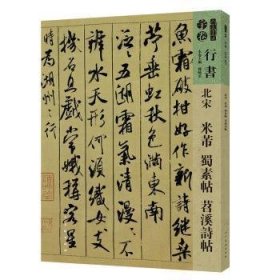 行書
北宋
米芾 蜀素帖 苕溪詩帖
魚霜破柑好作新詩継桑
苧垂虹秋色滿東南
泛泛五湖霜氣清漫漫不
辨水天形何須織女支機
石且戲常娥稱客星
時為湖州之行